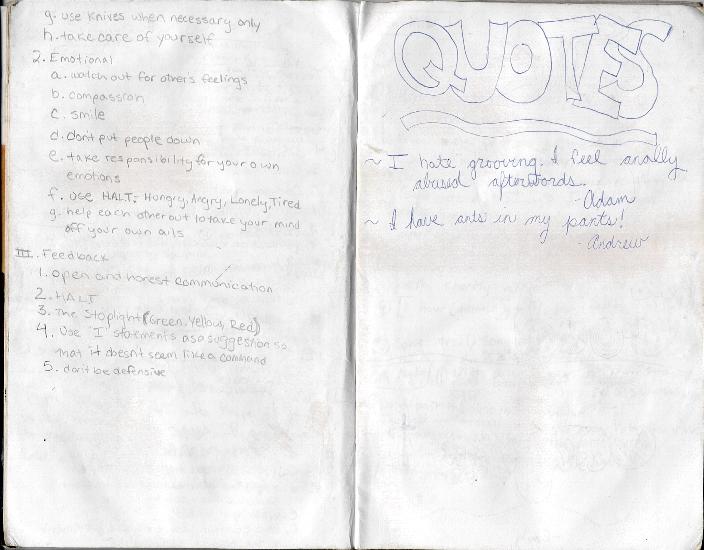 g. use knives when necessary only
h. take care of yourself
2. Emotional
a. watch out for others feelings
b. compassion
c. smile
d. don't put people down
e. take responsibility for your own
emotions
f. USE HALT: Hungry, Angry, Lonely, Tired
g. help each other out to take your mind
off your own ails
III. Feedback
1. open and honest communication
2. HALT
3. The Stoplight (Green, Yellow, Red)
4. Use "I" statements as a suggestion so
that it doesn't seem like a command
5. don't be defensive
QUOTES
~ I hate grooving. I feel anally
abused afterwords.
- Adam
~ I have ants in my pants!
- Andrew